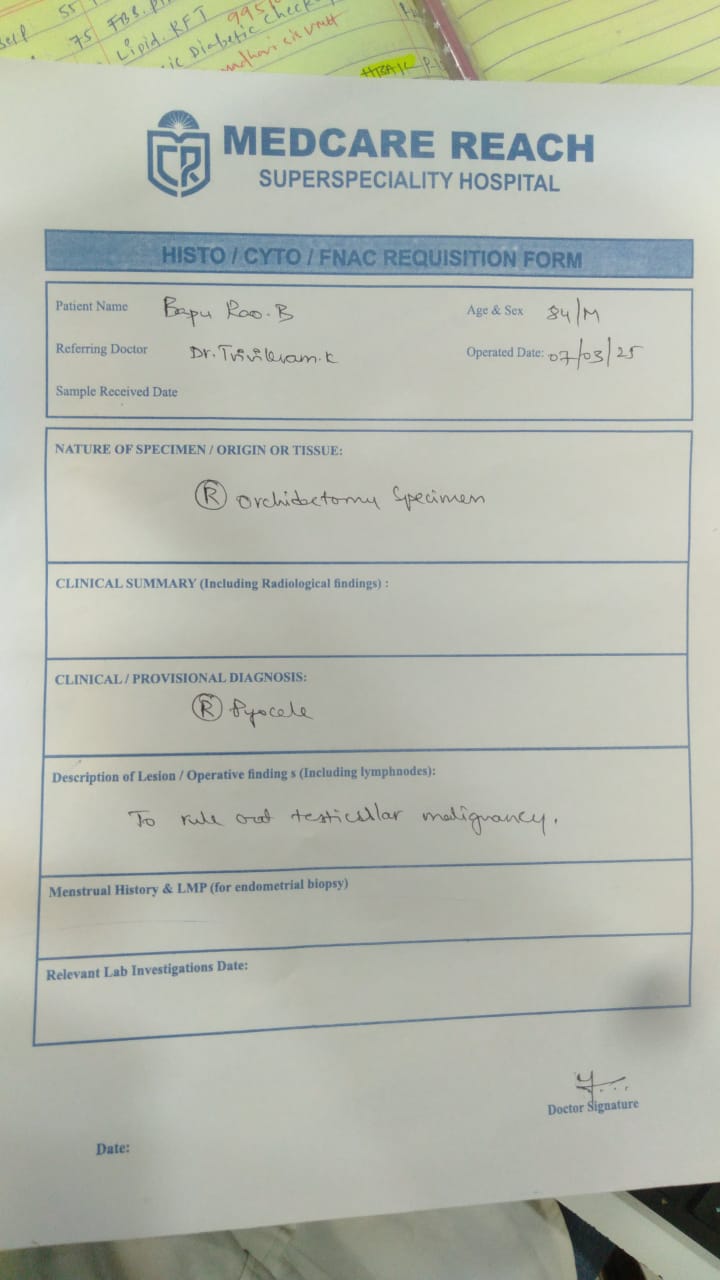 55
75 FBS.
Lipid. RFT 995
Diabetic Check
HBA1C
MEDCARE REACH
SUPERSPECIALITY HOSPITAL
HISTO / CYTO / FNAC REQUISITION FORM
Patient Name Bapu Rao.B Age & Sex 84/M
Referring Doctor Dr.Trivikram.k Operated Date: 07/03/25
Sample Received Date
NATURE OF SPECIMEN / ORIGIN OR TISSUE:
Ⓡ orchidectomy Specimen
CLINICAL SUMMARY (Including Radiological findings) :
CLINICAL / PROVISIONAL DIAGNOSIS:
Ⓡ Pyocele
Description of Lesion / Operative finding s (Including lymphnodes):
To rule out testicular malignancy.
Menstrual History & LMP (for endometrial biopsy)
Relevant Lab Investigations Date:
Doctor Signature
Date: